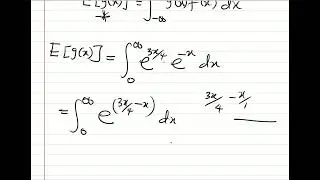 E[g(x)] = ∫ g(x)f(x) dx
E[g(x)] = ∫₀^∞ e^{3x/4} e^{-x} dx
= ∫₀^∞ e^{(3x/4 - x)} dx    3x/4 - x/1